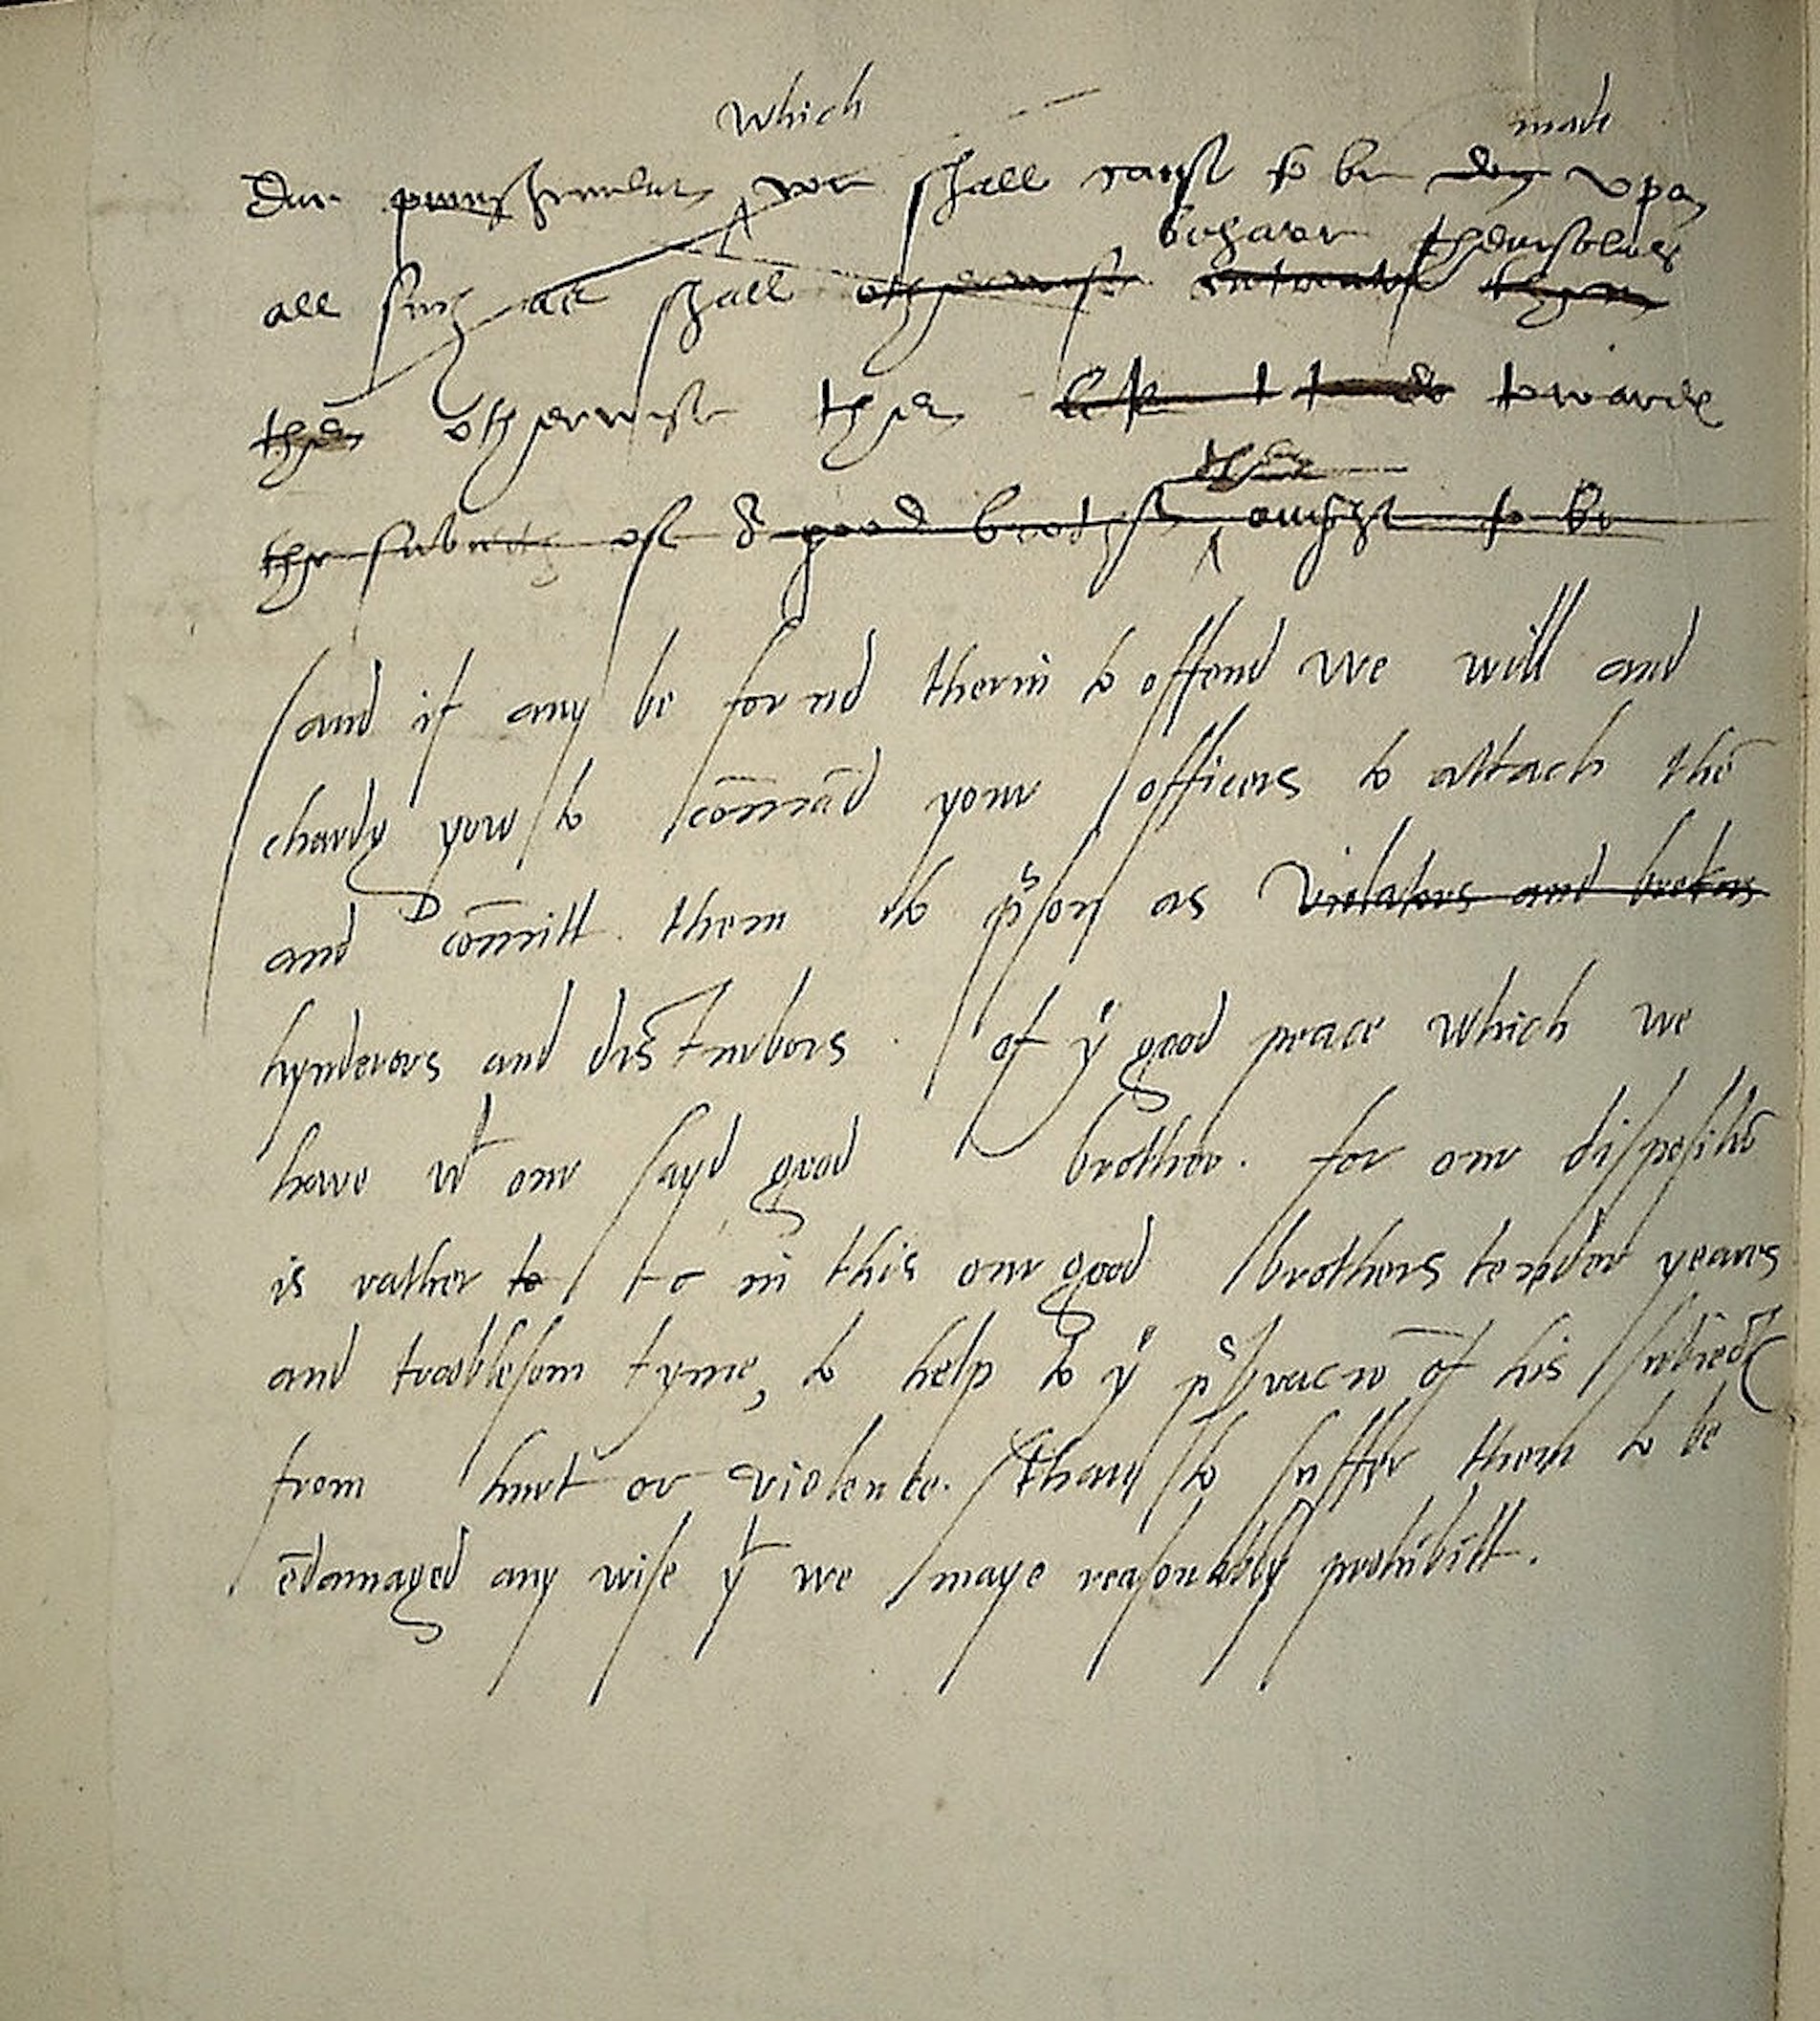 which made
Due punishment we shall cause to be don upon
behave themselves
all such as shall otherwise entreate them
then otherwise then towards
the subiects of or good brother ought to be
and if any be found therin to offend we will and
chardg yow to cōmād your officers to attach thē
and cōmitt them to pˢson as violators and brekars
hynderors and disturbors of yᵉ good peace which we
have wᵗ our sayd good brother. for our dispositiō
is rather to to in this our good brothers tender yeares
and troublesom tyme, to help to yᵉ pˢervaciō of his subiects
from hurt or violence. than to suffer them to be
ēdamaged any wise yᵗ we maye reasonably prohibitt.